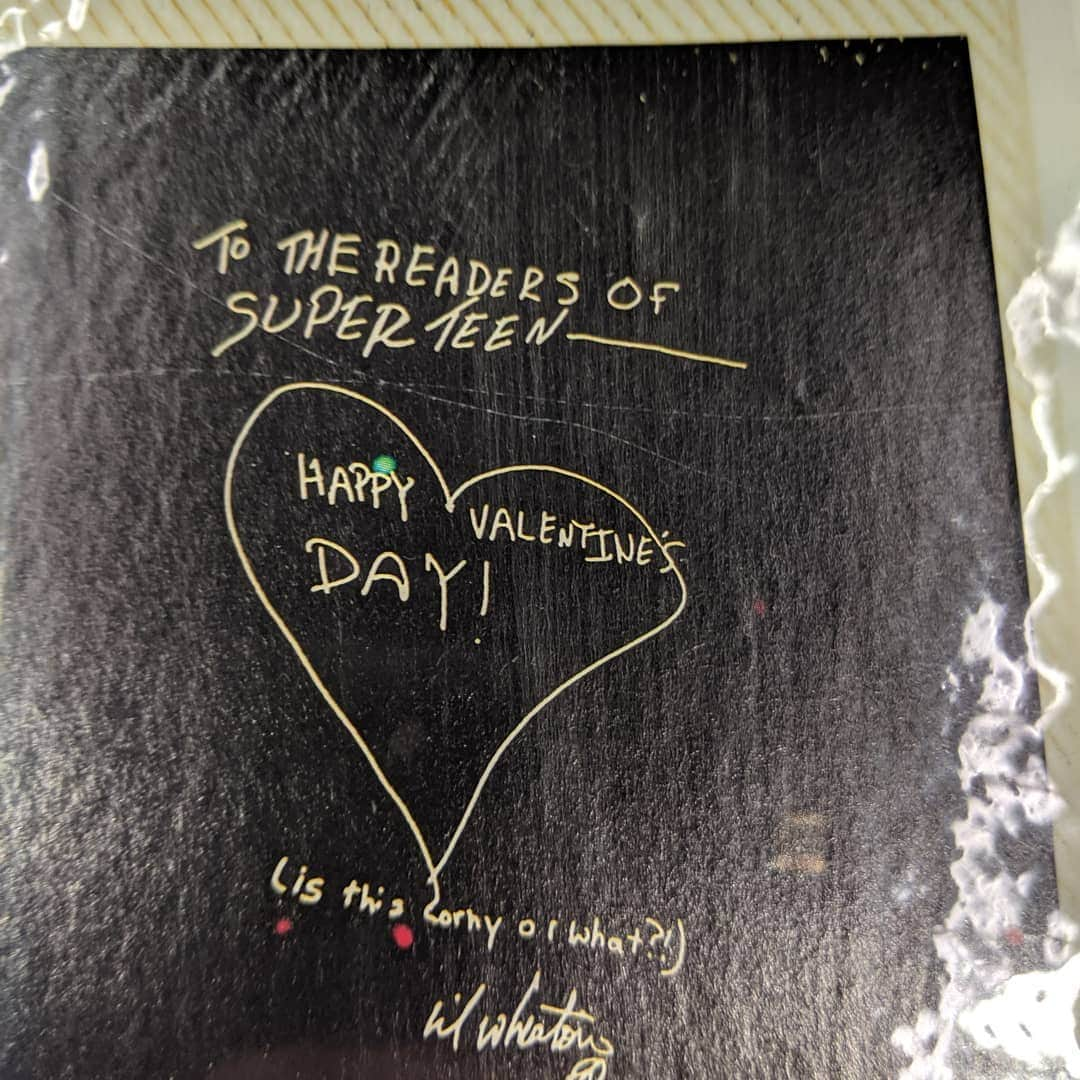 To THE READERS OF
SUPER TEEN
HAPPY VALENTINE'S
DAY!
(is this corny or what?!)
Wil Wheaton